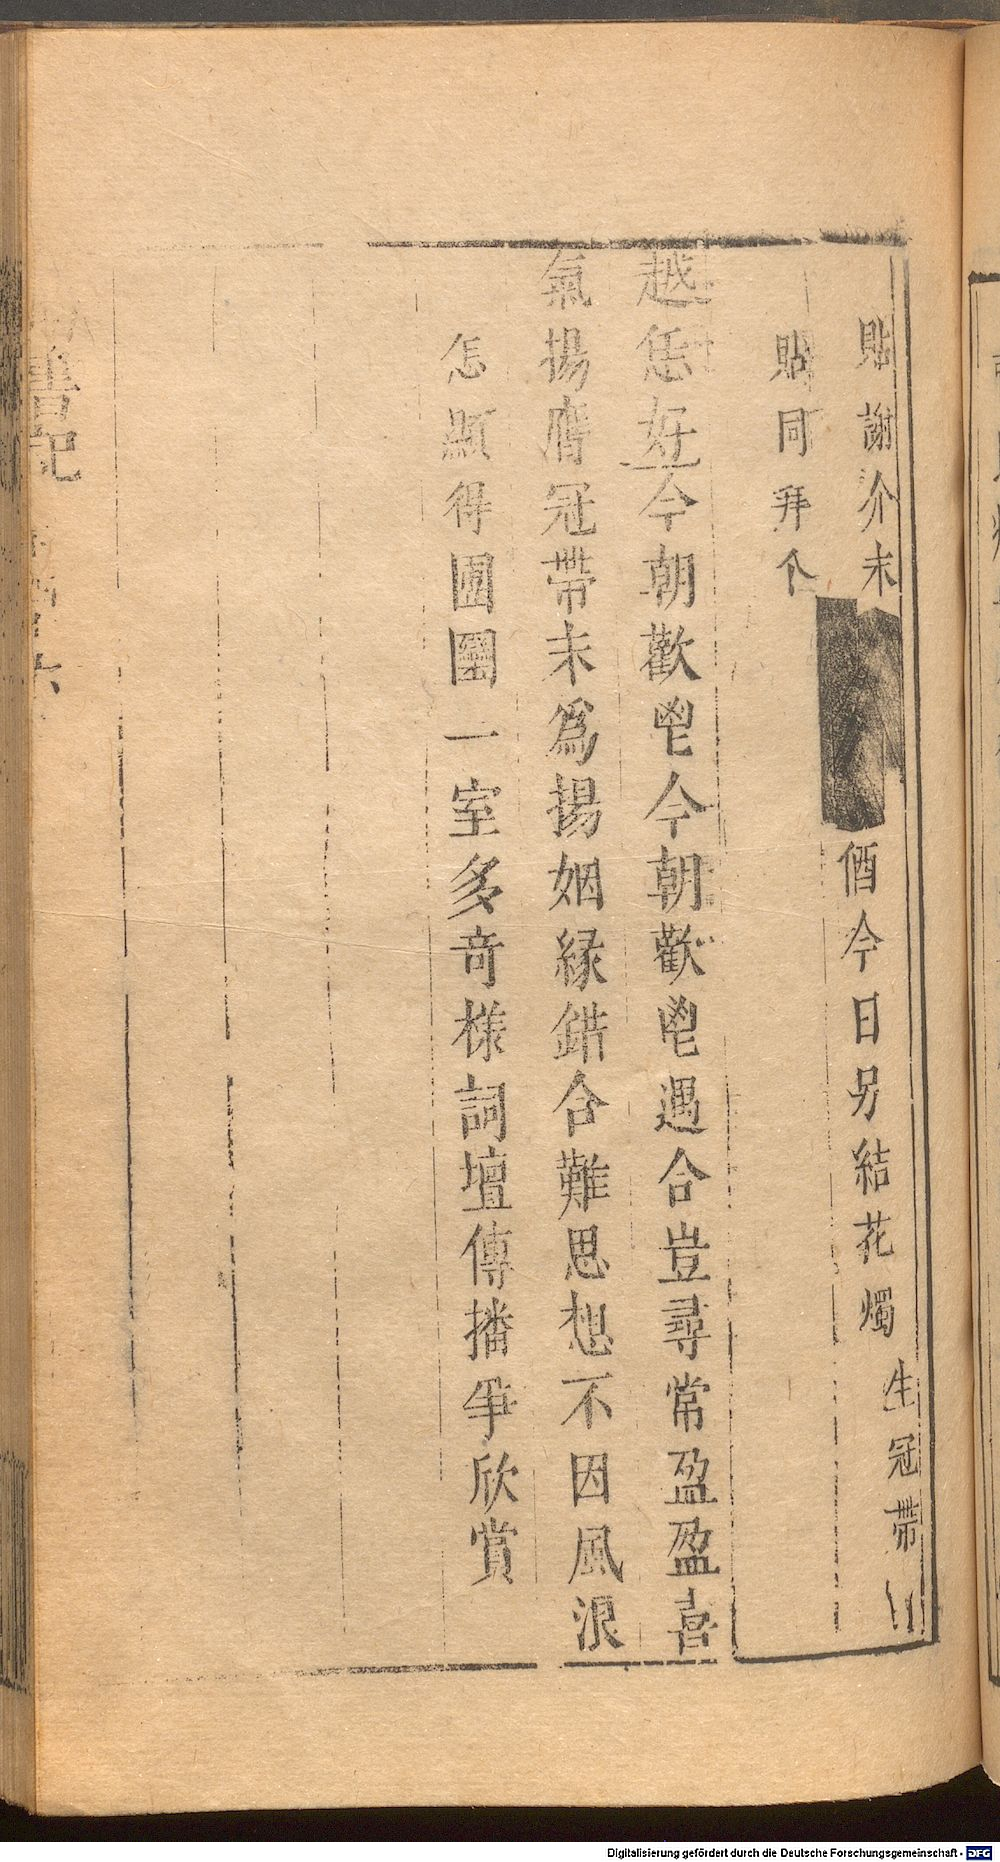 貼謝介末
偤今日另結花燭
生冠帶
貼同拜介
越恁好今朝歡鬯今朝歡鬯遇合豈尋常盈盈喜
氣揚膺冠帶未為揚姻緣錯合難思想不因風浪
怎顯得團圞一室多奇樣詞壇傳播爭欣賞
書記
六
Digitalisierung gefördert durch die Deutsche Forschungsgemeinschaft - DFG